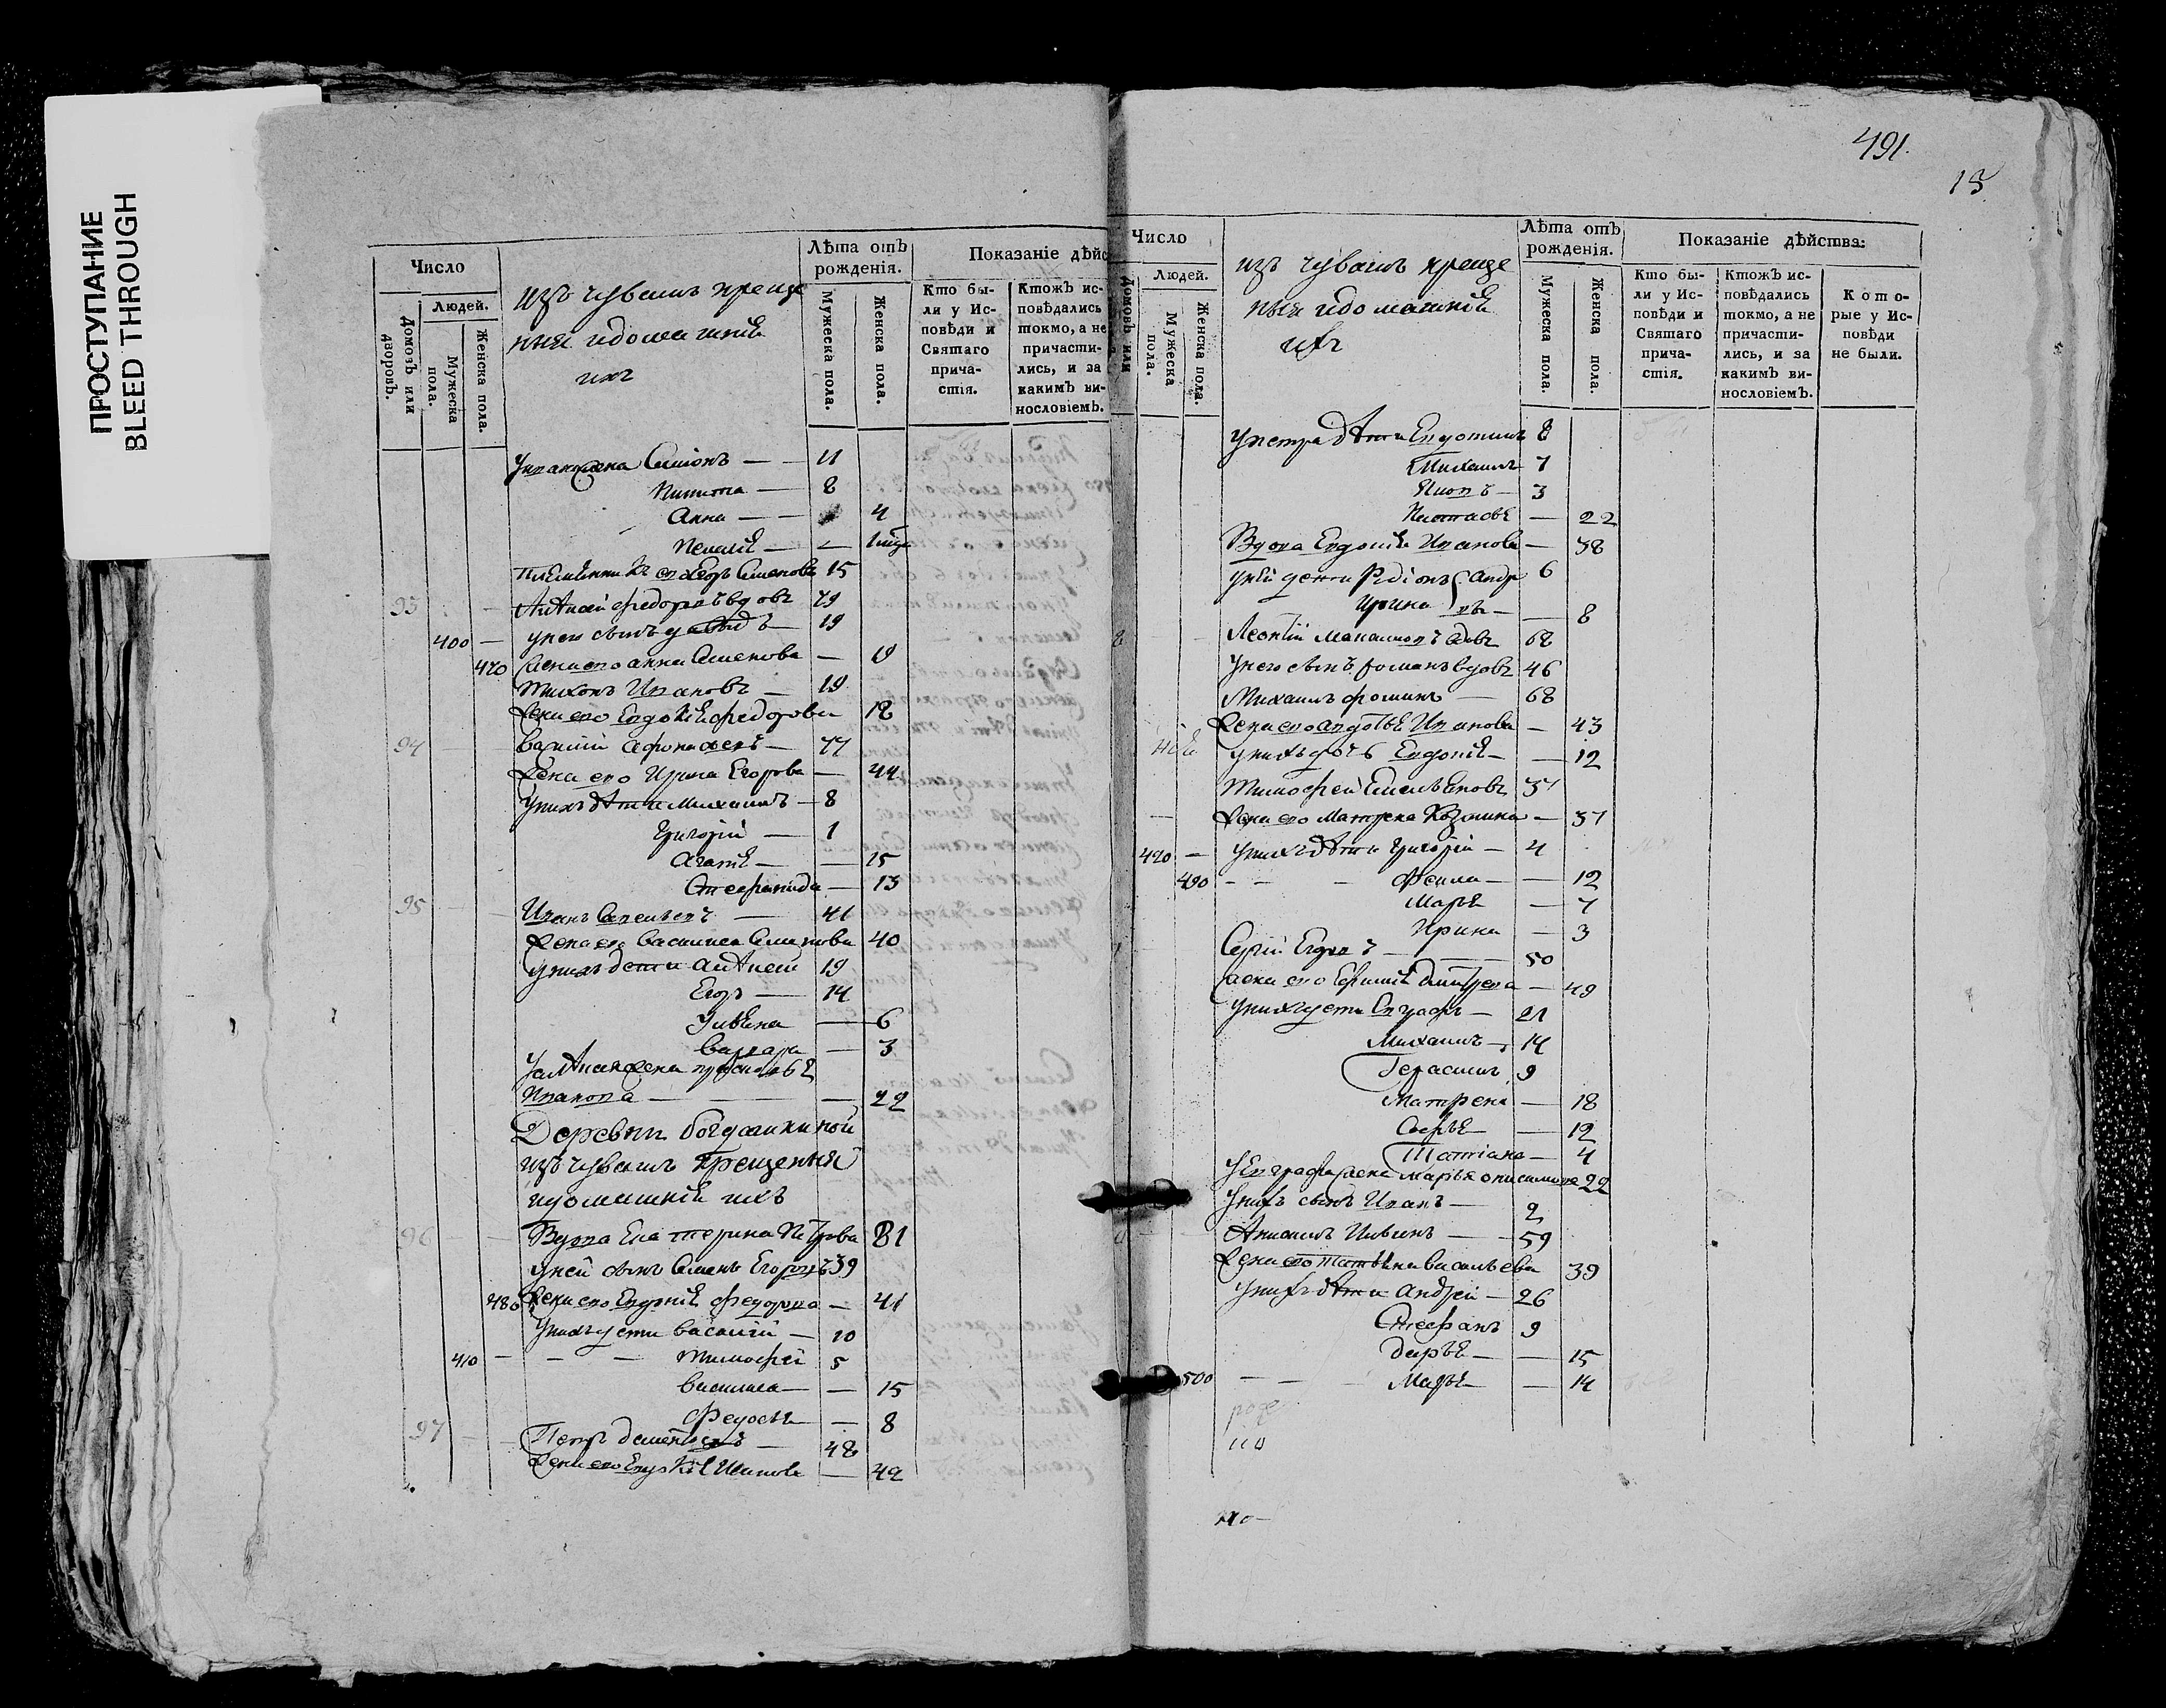 ПРОСТУПАНИЕ
BLEED THROUGH
Число
Людей.
Домовъ или дворовъ.
Мужеска пола.
Женска пола.
изъ чувашъ креще
ныя и домашніе
ихъ
Лѣта отъ рожденія.
Мужеска пола.
Женска пола.
Показаніе дѣйс
Кто были у Исповѣди и Святаго причастія.
Ктожъ исповѣдались токмо, а не причастились, и за какимъ винословіемъ.
Симіонъ — 11
Никита — 8
Анна — 4
Пелагѣя —
15
93 Алѣксѣй Федоровъ вдовъ 79
400 — у него сынъ Давыдъ 19
470 Жена его Анна Семенова — 19
Тихонъ Ивановъ — 19
Жена его Евдокія Федорова 18
94 Василій Афонасьевъ — 77
Жена его Ирина Егорова — 44
У нихъ дѣти Михаилъ — 8
Григорій — 1
Агапія — 15
Стефанида — 13
95 Иванъ Савельевъ — 41
Жена его Василиса Семенова 40
у нихъ дети Алѣксѣй 19
Егоръ — 14
Ульяна — 6
Варвара — 3
У Алѣксѣя жена Прасковья
Иванова — 22
Деревни Богдашкиной
изъ чувашъ крещенныя
и домашніе ихъ
96 Вдова Екатерина Петрова 81
у ней сынъ Семенъ Егоровъ 39
480 Жена его Евдокія Федорова — 41
У нихъ дети Василій — 10
410 — — — Тимофей 5
Василиса — 15
Федосья — 8
97 Петръ Дементьевъ — 48
Жена его Евдокія — 42
491.
15
Число
Домовъ или
Людей.
Мужеска пола.
Женска пола.
изъ чувашъ креще
ныя и домашніе
ихъ
Лѣта отъ рожденія.
Мужеска пола.
Женска пола.
Показаніе дѣйства:
Кто были у Исповѣди и Святаго причастія.
Ктожъ исповѣдались токмо, а не причастились, и за какимъ винословіемъ.
Которые у Исповѣди не были.
У Петра дѣти 8
Михаилъ 7
3
Настасья — 22
Вдова Евдокія Иванова — 38
у ней дети Родіонъ Андр 6
Ирина — 8
Леонтій вдовъ 68
У него сынъ Романъ вдовъ 46
Михаилъ Фоминъ — 68
Жена его Авдотья Иванова — 43
у нихъ дочь Евдокія — 12
Тимофей Емельяновъ 37
Жена его Матрена Козмина — 37
420 — у нихъ дѣти Григорій — 4
490 — — — Фекла — 12
Марья — 7
Ирина — 3
Сергій Егоровъ — 50
Жена его — 49
У нихъ дети Евграфъ — 21
Михаилъ — 14
Герасимъ 9
Матрена — 18
Софья — 12
Татіана — 4
У Евграфа жена Марья Онисимова 22
У нихъ сынъ Иванъ — 2
59
Жена его Татьяна Васильева 39
У нихъ дѣти Андрей — 26
Стефанъ 9
Дарья — 15
500 — — Марья — 14